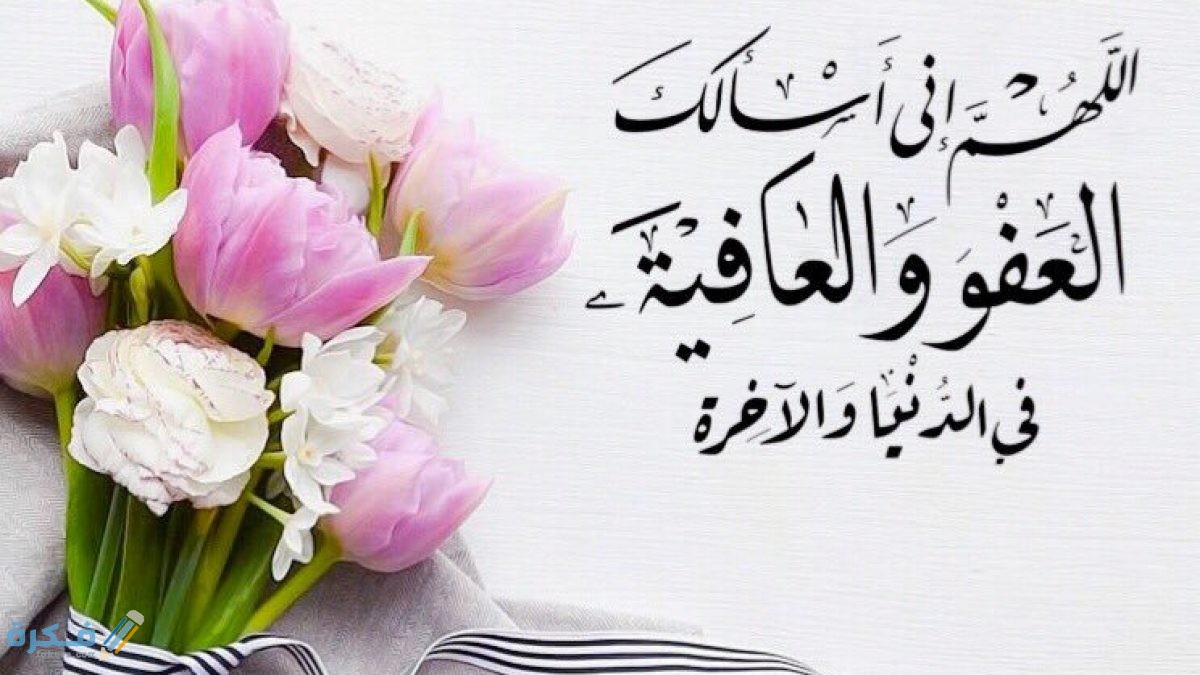 اللَّهُمَّ إنى أَسْألك
العَفْوَ وَالعَافِيَةَ
في الدُّنْيَا وَالآخِرة
فكرة